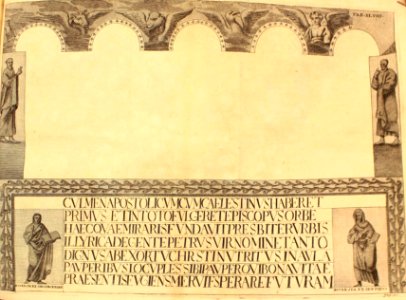 TAB. XLVIII.
CVLMEN APOSTOLICVM CVM CAELESTINVS HABERET
PRIMVS ET IN TOTO FVLGERET EPISCOPVS ORBE
HAEC QVAE MIRARIS FVNDAVIT PRESBITER VRBIS
ILLYRICA DE GENTE PETRVS VIR NOMINE TANTO
DIGNVS AB EXORTV CHRISTI NVTRITVS IN AVLA
PAVPERIBVS LOCVPLES SIBI PAVPER QVI BONA VITAE
PRAESENTIS FVGIENS MERVIT SPERARE FVTVRAM